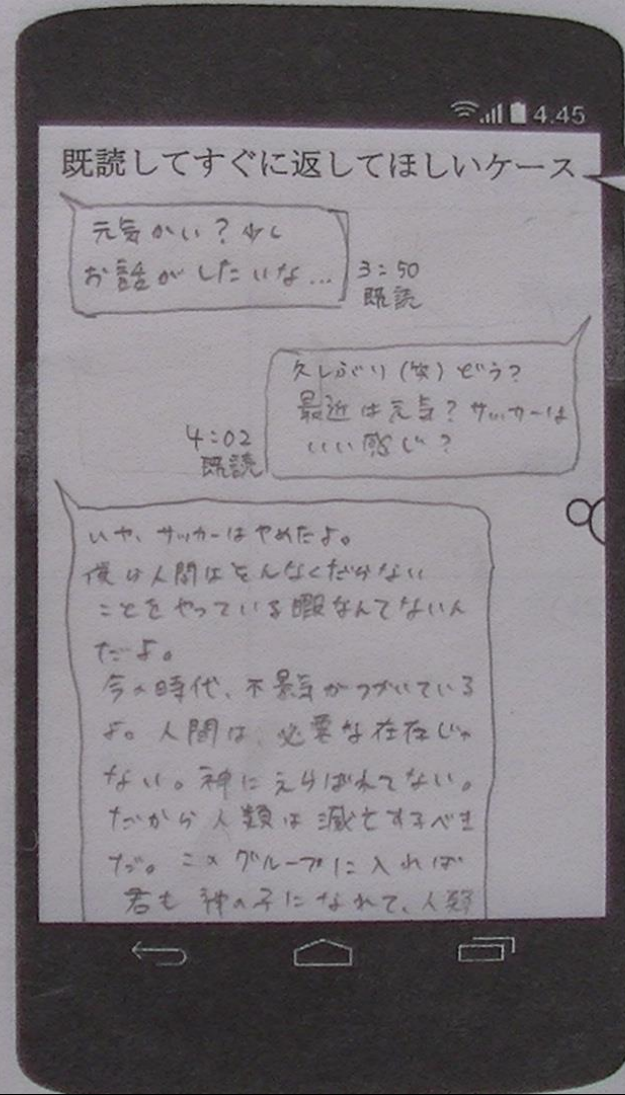 4.45
既読してすぐに返してほしいケース
元気かい？少し
お話がしたいな…
3:50
既読
久しぶり(笑)どう？
最近は元気？サッカーは
いい感じ？
4:02
既読
いや、サッカーはやめたよ。
僕は人間はそんなくだらない
ことをやっている暇なんてないん
だよ。
今の時代、不景気がつづいている
よ。人間は、必要な存在じゃ
ない。神にえらばれてない。
だから人類は滅亡するべき
だ。このグループに入れば
君も神の子になれて、人類